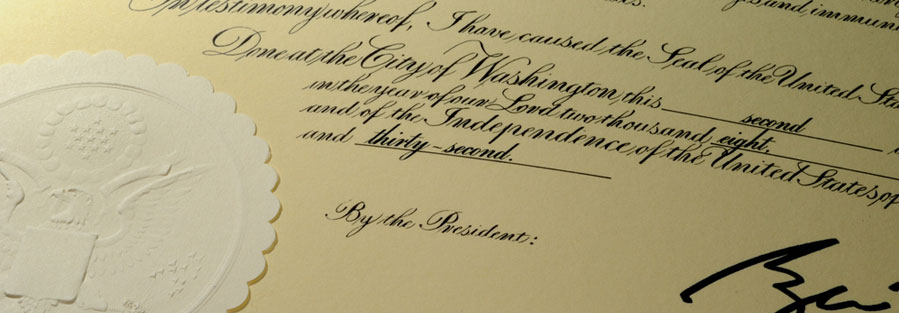 In testimony whereof, I have caused the Seal of the United
Done at the City of Washington, this second
in the year of our Lord two thousand, eight,
and of the Independence of the United States of
and thirty-second.
By the President: